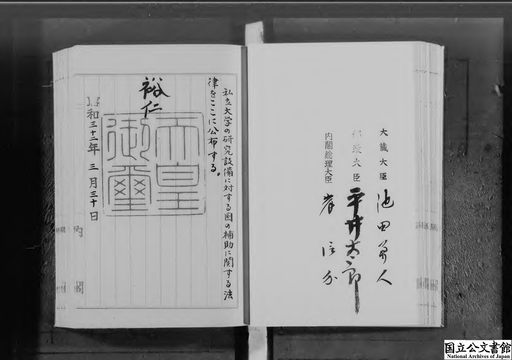 私立大学の研究設備に対する国の補助に関する法
律をここに公布する。
裕仁
天皇
御璽
昭和三十二年三月三十日
内閣
大蔵大臣 池田勇人
郵政大臣 平井太郎
内閣総理大臣 岸信介
国立公文書館
National Archives of Japan